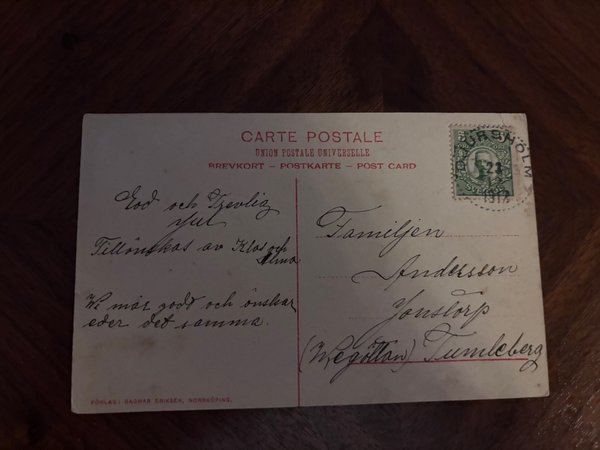 CARTE POSTALE
UNION POSTALE UNIVERSELLE
BREVKORT – POSTKARTE – POST CARD
God och Trevlig
Jul
Tillönskas av Klas och
Alma
Wi mår godt och önskar
eder det samma.
Familjen
Andersson
Jonstorp
(Wegöttan) Tumleberg
DJURSHOLM
23
12
FÖRLAG: DAGMAR ERIKSEN, NORRKÖPING.